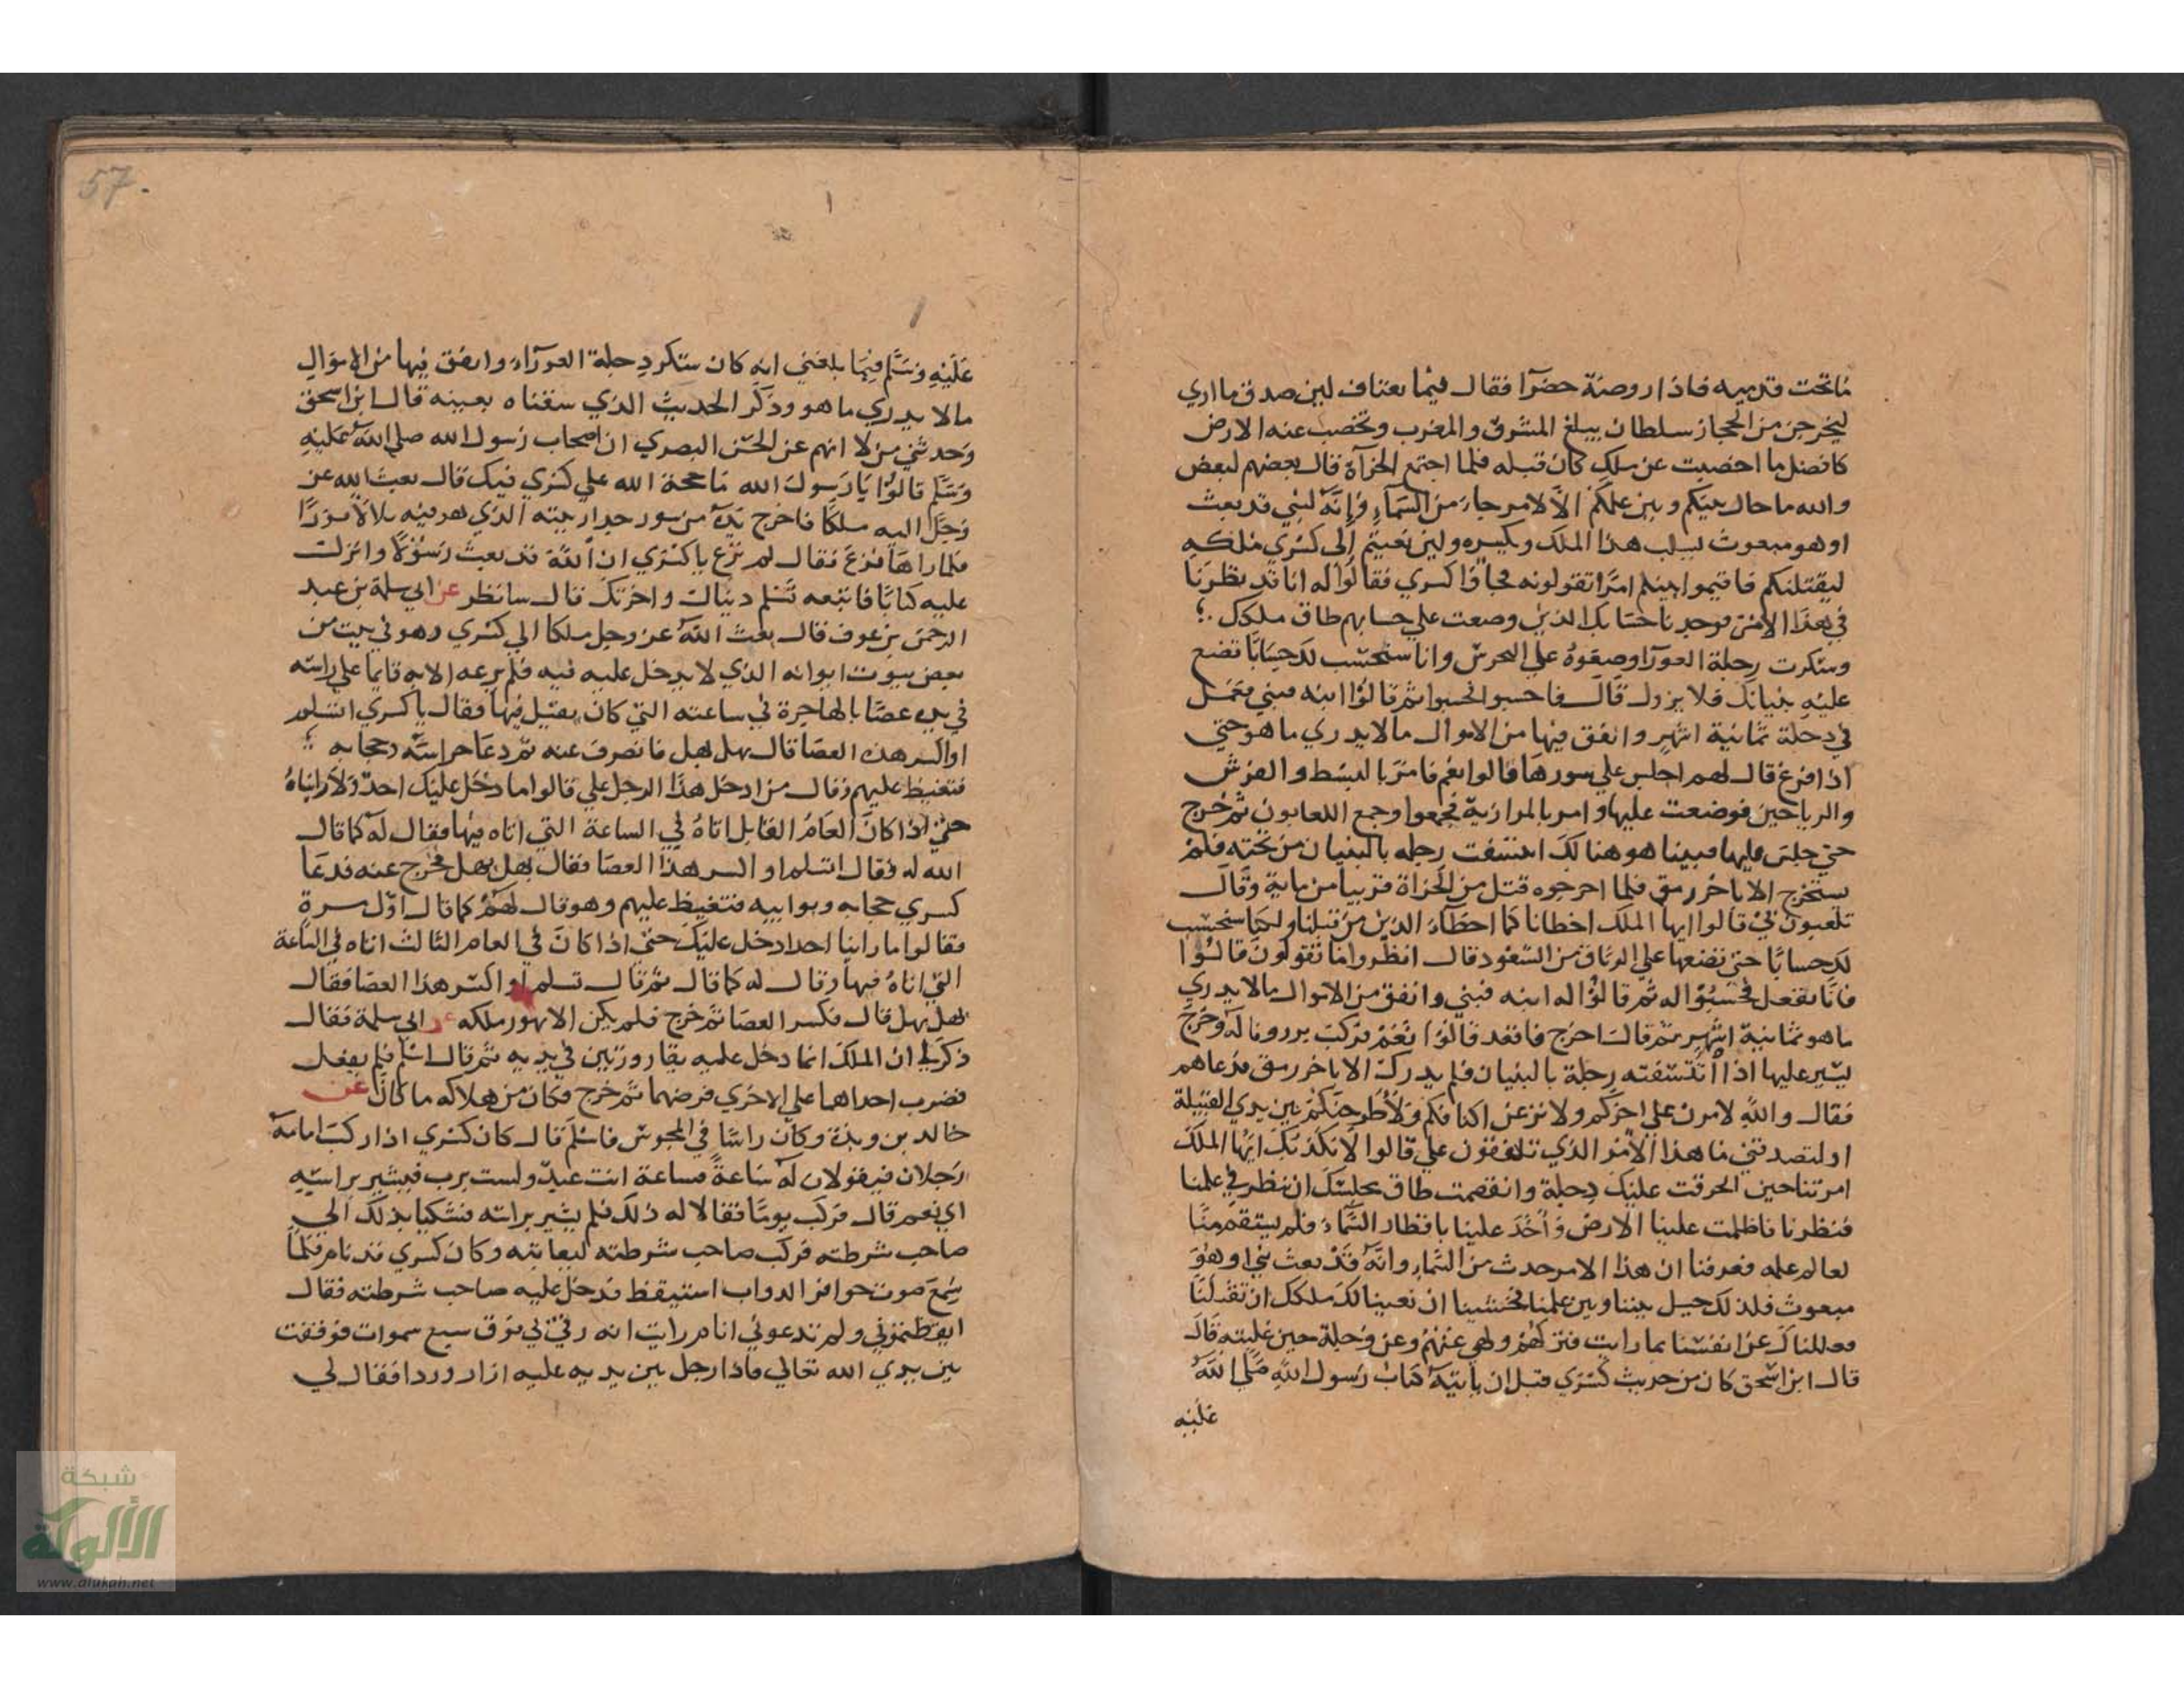 ما تحت قدميه فاذا روضة خضرا فقال فيما يعتاف لين صدق ما اري
ليخرجن من الحجاز سلطان يبلغ المشرق والمغرب وتخصب عنه الارض
كافضل ما اخصبت عن ملك كان قبله فلما اجتمع الحزاة قال بعضهم لبعض
والله ما حال بينكم وبين علمكم الا لامر جاء من السماء وانه لنبي قد بعث
او هو مبعوث يسلب هذا الملك ويكسره ولين نعيتم الى كسري ملكه
ليقتلنكم فاقيموا بينكم امرا تقولونه فجاؤا كسري فقالوا له انا قد نظرنا
في هذا الامر فوجدنا حسابك الذين وضعت علي حسابهم طاق ملكك
وسكرت دجلة العورا وضعوه علي النحوس وانا سنحسب لك حسابا تضع
عليه بنيانك فلا يزول قال فاحسبوا فحسبوا ثم قالوا ابنه فبني فعمل
في دجلة ثمانية اشهر وانفق فيها من الاموال ما لا يدري ما هو حتي
اذا فرغ قال لهم اجلس علي سورها قالوا نعم فامر بالبسط والفرش
والرياحين فوضعت عليها وامر بالمرازبة فجمعوا وجمع اللعابون ثم خرج
حتي جلس عليها فبينا هو هنالك انتسفت دجلة بالبنيان من تحته فلم
يستخرج الا باخر رمق فلما اخرجوه قتل من الحزاة قريبا من ماية وقال
تلعبون بي قالوا ايها الملك اخطانا كما اخطاء الذين من قبلنا ولكنا سنحسب
لك حسابا حتي تضعها علي الوثاق من السعود قال انظروا ما تقولون قالوا
فانا نفعل فحسبوا له ثم قالوا له ابنه فبني وانفق من الاموال ما لا يدري
ما هو ثمانية اشهر ثم قال اخرج فاقعد قالوا نعم فركب برذونا له وخرج
يسير عليها اذا انتسفته دجلة بالبنيان فلم يدرك الا باخر رمق فدعاهم
فقال والله لامرن علي اخركم ولانزعن اكتافكم ولاطرحنكم بين يدي الفيلة
او لتصدقني ما هذا الامر الذي تلفقون علي قالوا لا نكذبك ايها الملك
امرتنا حين انخرقت عليك دجلة وانقصمت طاق مجلسك ان ننظر في علمنا
فنظرنا فاظلمت علينا الارض واخذ علينا باقطار السماء فلم يستقم منا
لعالم علمه فعرفنا ان هذا الامر حدث من السماء وانه قد بعث نبي او هو
مبعوث فلذلك حيل بيننا وبين علمنا فخشينا ان نعينا لك ملكك ان تقتلنا
فعللناك عن انفسنا بما رايت فتركهم ولهي عنهم وعن دجلة حين غلبته قال
قال ابن اسحق كان من حديث كسري قبل ان ياتيه كتاب رسول الله صلى الله
عليه
57.
عليه وسلم فيما بلغني انه كان سكر دجلة العوراء وانفق فيها من الاموال
ما لا يدري ما هو وذكر الحديث الذي سقناه بعينه قال ابن اسحق
وحدثني من لا اتهم عن الحسن البصري ان اصحاب رسول الله صلى الله عليه
وسلم قالوا يا رسول الله ما حجة الله علي كسري فيك قال بعث الله عز
وجل اليه ملكا فاخرج يده من سور جدار بيته الذي هو فيه تلالا نورا
فلما راها فزع فقال لم ترع يا كسري ان الله قد بعث رسولا وانزل
عليه كتابا فاتبعه تسلم دنياك واخرتك قال سانظر عن ابي سلمة بن عبد
الرحمن بن عوف قال بعث الله عز وجل ملكا الي كسري وهو في بيت من
بعض بيوت ايوانه الذي لا يدخل عليه فيه فلم يرعه الا به قايما علي راسه
في يده عصا بالهاجرة في ساعته التي كان يقيل فيها فقال يا كسري اتسلم
او اكسر هذه العصا قال بهل بهل فانصرف عنه ثم دعا حراسه وحجابه
فتغيظ عليهم وقال من ادخل هذا الرجل علي قالوا ما دخل عليك احد ولا رايناه
حتي اذا كان العام القابل اتاه في الساعة التي اتاه فيها فقال له كما قال
الله له فقال اتسلم او اكسر هذا العصا فقال بهل بهل فخرج عنه فدعا
كسري حجابه وبوابيه فتغيظ عليهم وهو قال لهم كما قال اول مرة
فقالوا ما راينا احدا دخل عليك حتي اذا كان في العام الثالث اتاه في الساعة
التي اتاه فيها وقال له كما قال ثم قال تسلم او اكسر هذا العصا فقال
بهل بهل قال فكسر العصا ثم خرج فلم يكن الا تهور ملكه عن ابي سلمة فقال
ذكر لي ان الملك انما دخل عليه بقارورتين في يديه ثم قال اسلم فلم يفعل
فضرب احداهما علي الاخري فرضهما ثم خرج فكان من هلاكه ما كان عن
خالد بن وبدة وكان راسا في المجوس فاسلم قال كان كسري اذا ركب امامه
رجلان فيقولان له ساعة فساعة انت عبد ولست برب فيشير براسه
اي نعم قال فركب يوما فقالا له ذلك فلم يشير براسه فشكيا بذلك الي
صاحب شرطته فركب صاحب شرطته ليعاتبه وكان كسري قد نام فلما
سمع صوت حوافر الدواب استيقظ فدخل عليه صاحب شرطته فقال
ايقظتموني ولم تدعوني انام رايت انه رقي بي فوق سبع سموات فوقفت
بين يدي الله تعالي فاذا رجل بين يديه عليه ازار وردا فقال لي
شبكة
الألوكة
www.alukah.net